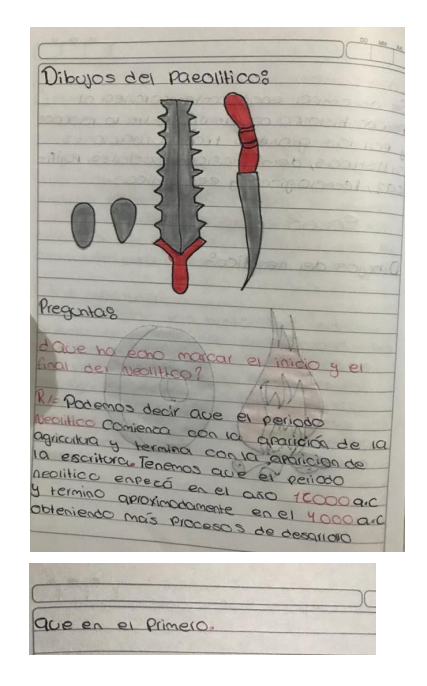 Dibujos del Paeolitico:
Preguntas
¿Que ha echo marcar el inicio y el
final del Neolitico?
R/= Podemos decir que el periodo
Neolitico comienca con la aparición de la
agricultura y termina con la aparicion de
la escritura. Tenemos que el periodo
neolitico enpecó en el año 10000 a.C
y termino aproximodamente en el 4000 a.C
obteniendo mas procesos de desarrollo
que en el Primero.